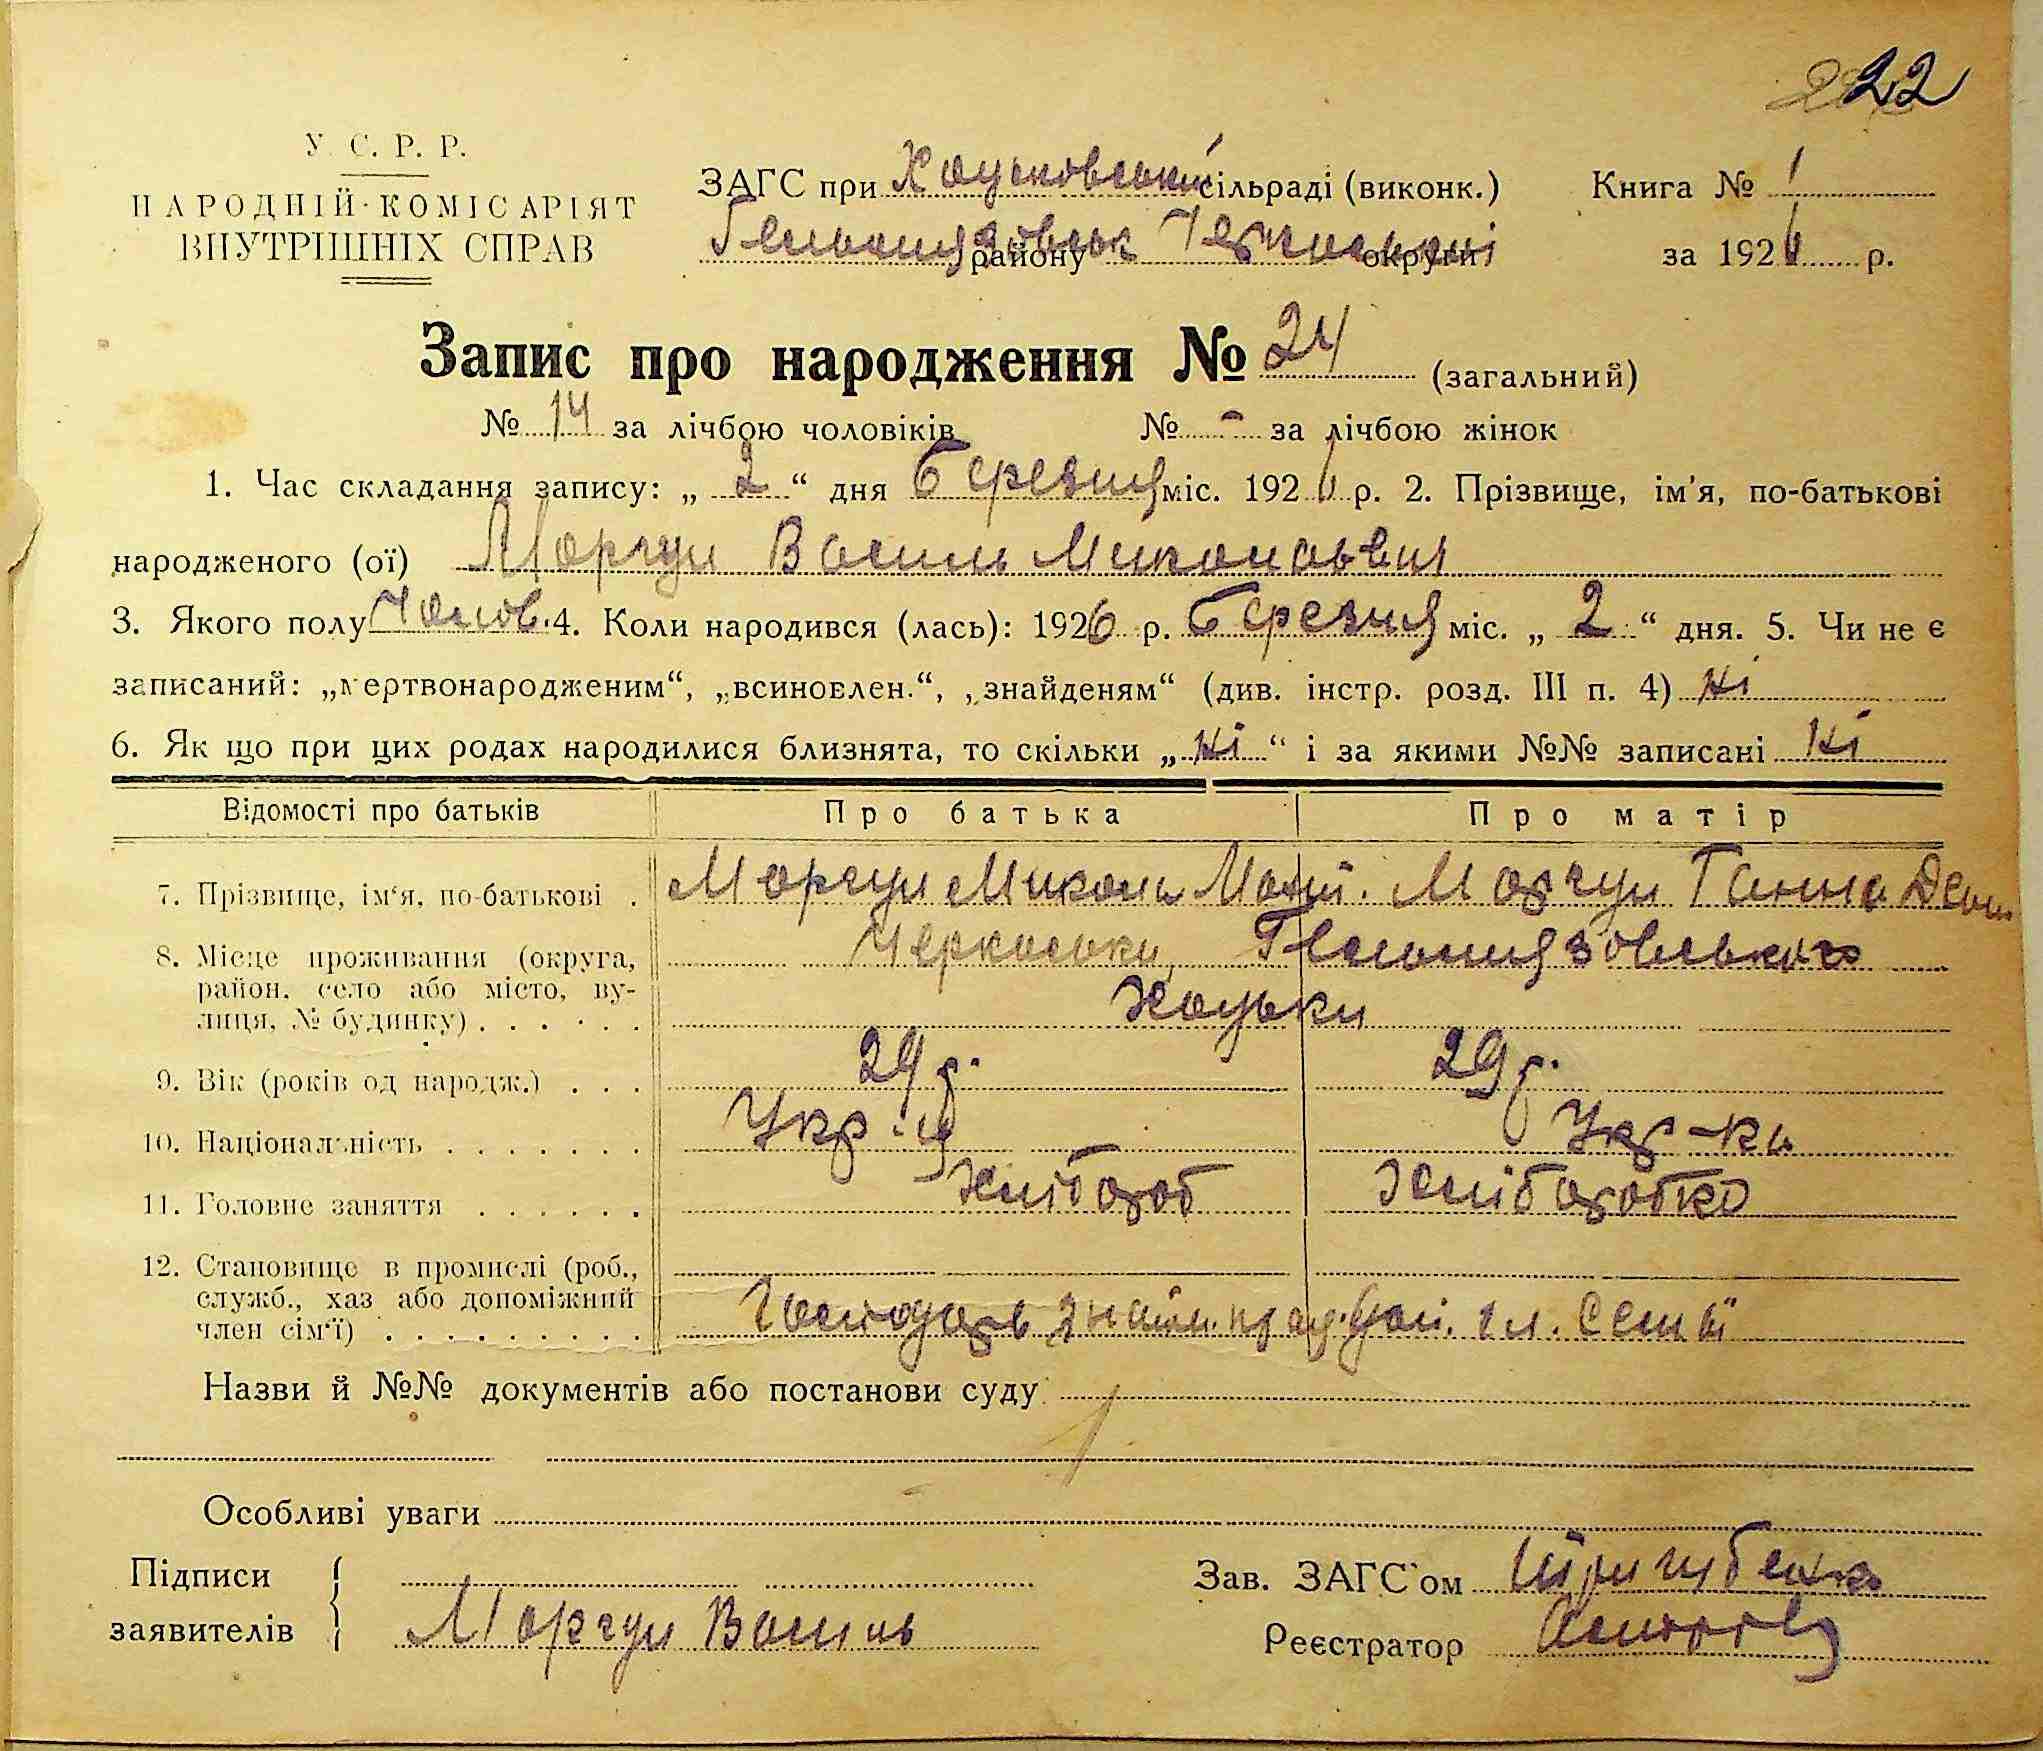 22
У. С. Р. Р.
НАРОДНІЙ КОМІСАРІЯТ
ВНУТРІШНІХ СПРАВ
ЗАГС при Хоцьковській сільраді (виконк.)
Гельмязівськ району Черкаської округи
Книга № 1
за 1926 р.
Запис про народження № 24 (загальний)
№ 14 за лічбою чоловіків № - за лічбою жінок
1. Час складання запису: „ 2 “ дня Березня міс. 1926 р. 2. Прізвище, ім'я, по-батькові
народженого (ої) Моргун Василь Миколаєвич
3. Якого полу Чолов. 4. Коли народився (лась): 1926 р. Березня міс. „ 2 “ дня. 5. Чи не є
записаний: „мертвонародженим“, „всиновлен.“, „знайденям“ (див. інстр. розд. III п. 4) Ні
6. Як що при цих родах народилися близнята, то скільки „ Ні “ і за якими №№ записані Ні
Відомості про батьків Про батька Про матір
7. Прізвище, ім'я, по-батькові . Моргун Микола Моргун Ганна
8. Місце проживання (округа, Черкаська, Гельмязівського
район, село або місто, ву-
лиця, № будинку) . . . . . . Хоцьки
9. Вік (років од народж.) . . . 24 р. 29 р.
10. Національність . . . . . . . Укр-ц Укр-ка
11. Головне заняття . . . . . . Хлібороб Хліборобка
12. Становище в промислі (роб.,
служб., хаз або допоміжний
член сім'ї) . . . . . . . . . Господарь гл. семьї
Назви й №№ документів або постанови суду
Особливі уваги
Підписи
заявителів Моргун Василь
Зав. ЗАГС'ом
Реєстратор